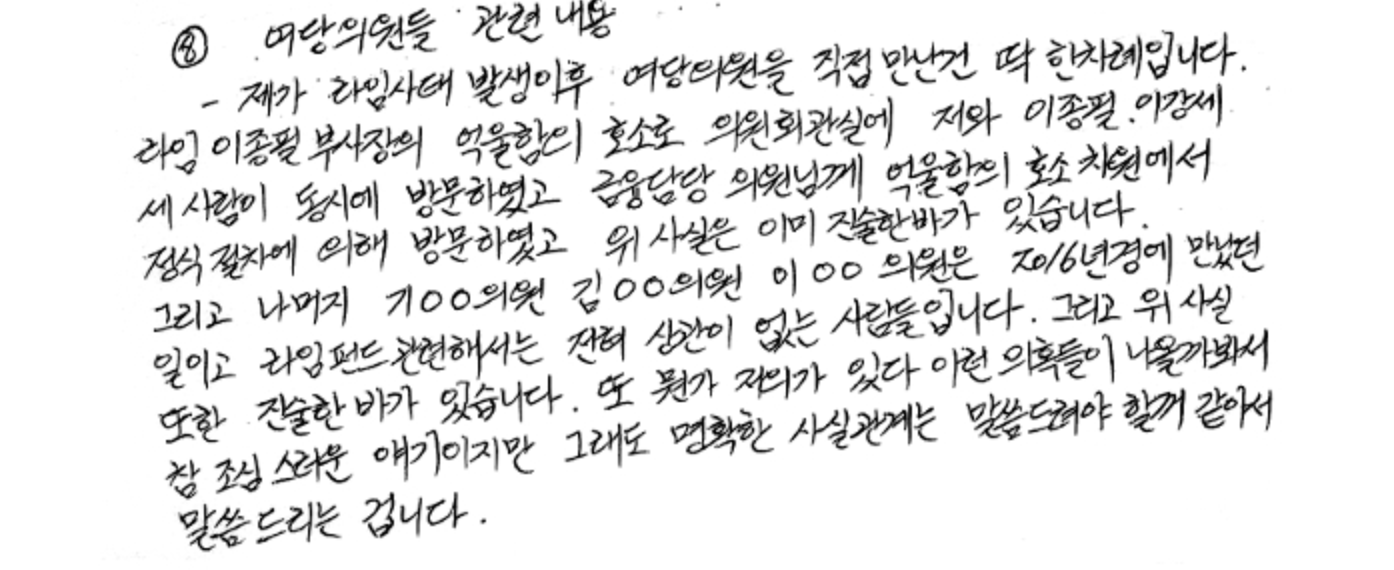 ⑧ 여당의원들 관련 내용
- 제가 라임사태 발생이후 여당의원을 직접 만난건 딱 한차례입니다.
라임 이종필 부사장의 억울함의 호소로 의원회관실에 저와 이종필.이강세
세 사람이 동시에 방문하였고 금융담당 의원님께 억울함의 호소 차원에서
정식 절차에 의해 방문하였고 위 사실은 이미 진술한바가 있습니다.
그리고 나머지 기○○의원 김○○의원 이○○ 의원은 2016년경에 만났던
일이고 라임펀드 관련해서는 전혀 상관이 없는 사람들입니다. 그리고 위 사실
또한 진술한 바가 있습니다. 또 뭔가 저의가 있다 이런 의혹들이 나올까봐서
참 조심 스러운 얘기이지만 그래도 명확한 사실관계는 말씀드려야 할꺼 같아서
말씀드리는 겁니다.